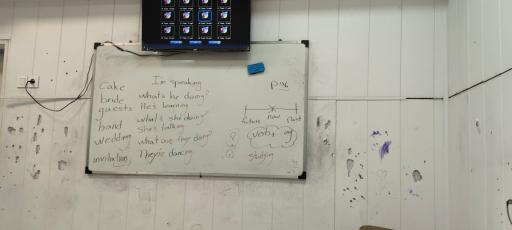 cake
bride
guests
band
wedding
invitation
I'm speaking
what's he doing?
He's learning
what's she doing?
she's talking
what are they doing?
They're dancing
now
verb+ ing
studying